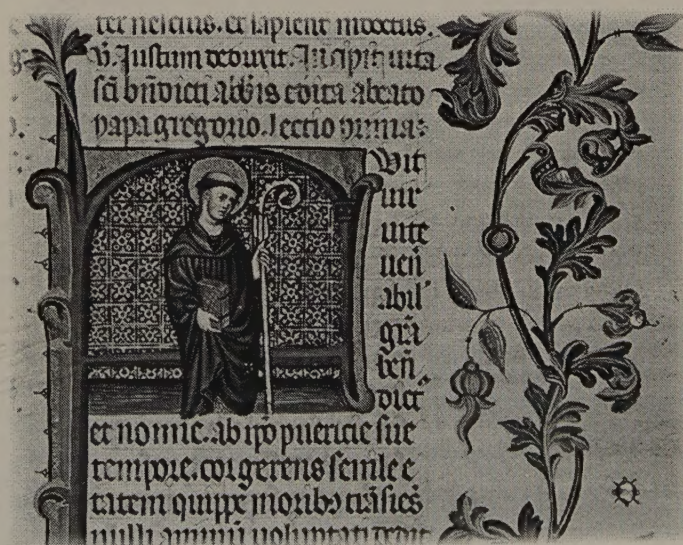 ter nescius. et sapient indoctus.
V. Justum deduxit. Incipit uita
sci bñdicti abbis edita a beato
papa gregorio. lectio prima.
uit
uir
uite
ueñ
abil'
grã
beñ
dict
et nomie. ab ipo puericie sue
tempore. cor gerens senile e
tatem quippe moribꝫ trãsiẽs
nulli animũ uoluptati dedit